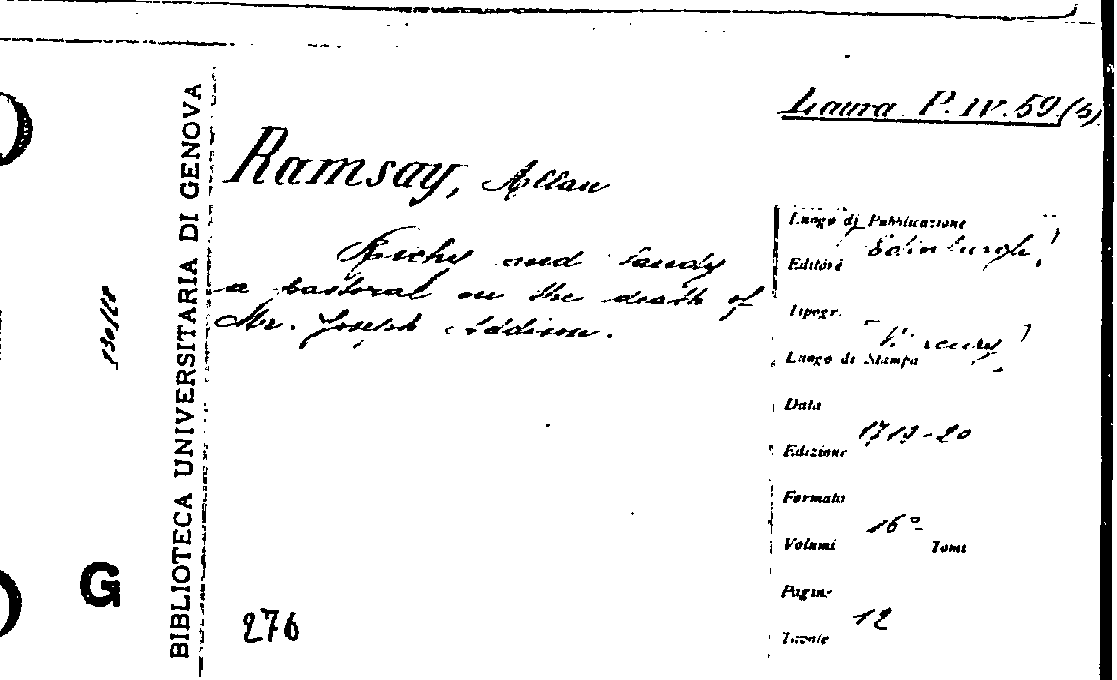 Laura P. IV. 59 (5)
Ramsay, Allan
Richy and Sandy
a pastoral on the death of
Mr. Joseph Addison.
Luogo di Pubblicazione
Edinburgh
Editore
Tipogr.
Luogo di Stampa
Data
1719-20
Edizione
Formato
16°
Volumi Tomi
Pagine
12
Tavole
276
BIBLIOTECA UNIVERSITARIA DI GENOVA
G